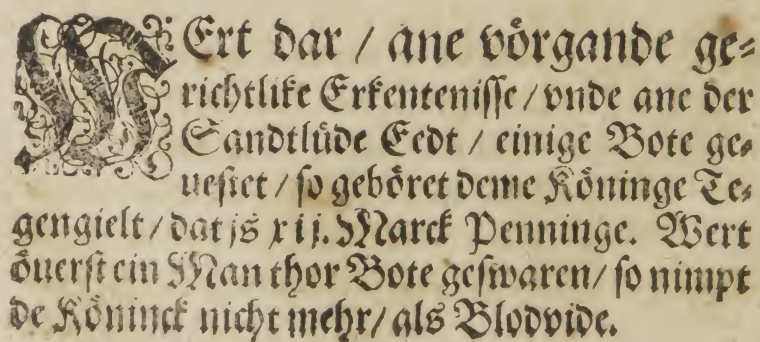 WErt dar / ane vörgande ge⸗
richtlike Erkentenisse / vnde ane der
Sandtlüde Eedt / einige Bote ge⸗
uestet / so gehöret deme Köninge Te⸗
gengielt / dat js xij. Marck Penninge. Wert
öuerst ein Man thor Bote geswaren / so nimpt
de Köninck nicht mehr / als Blodvide.